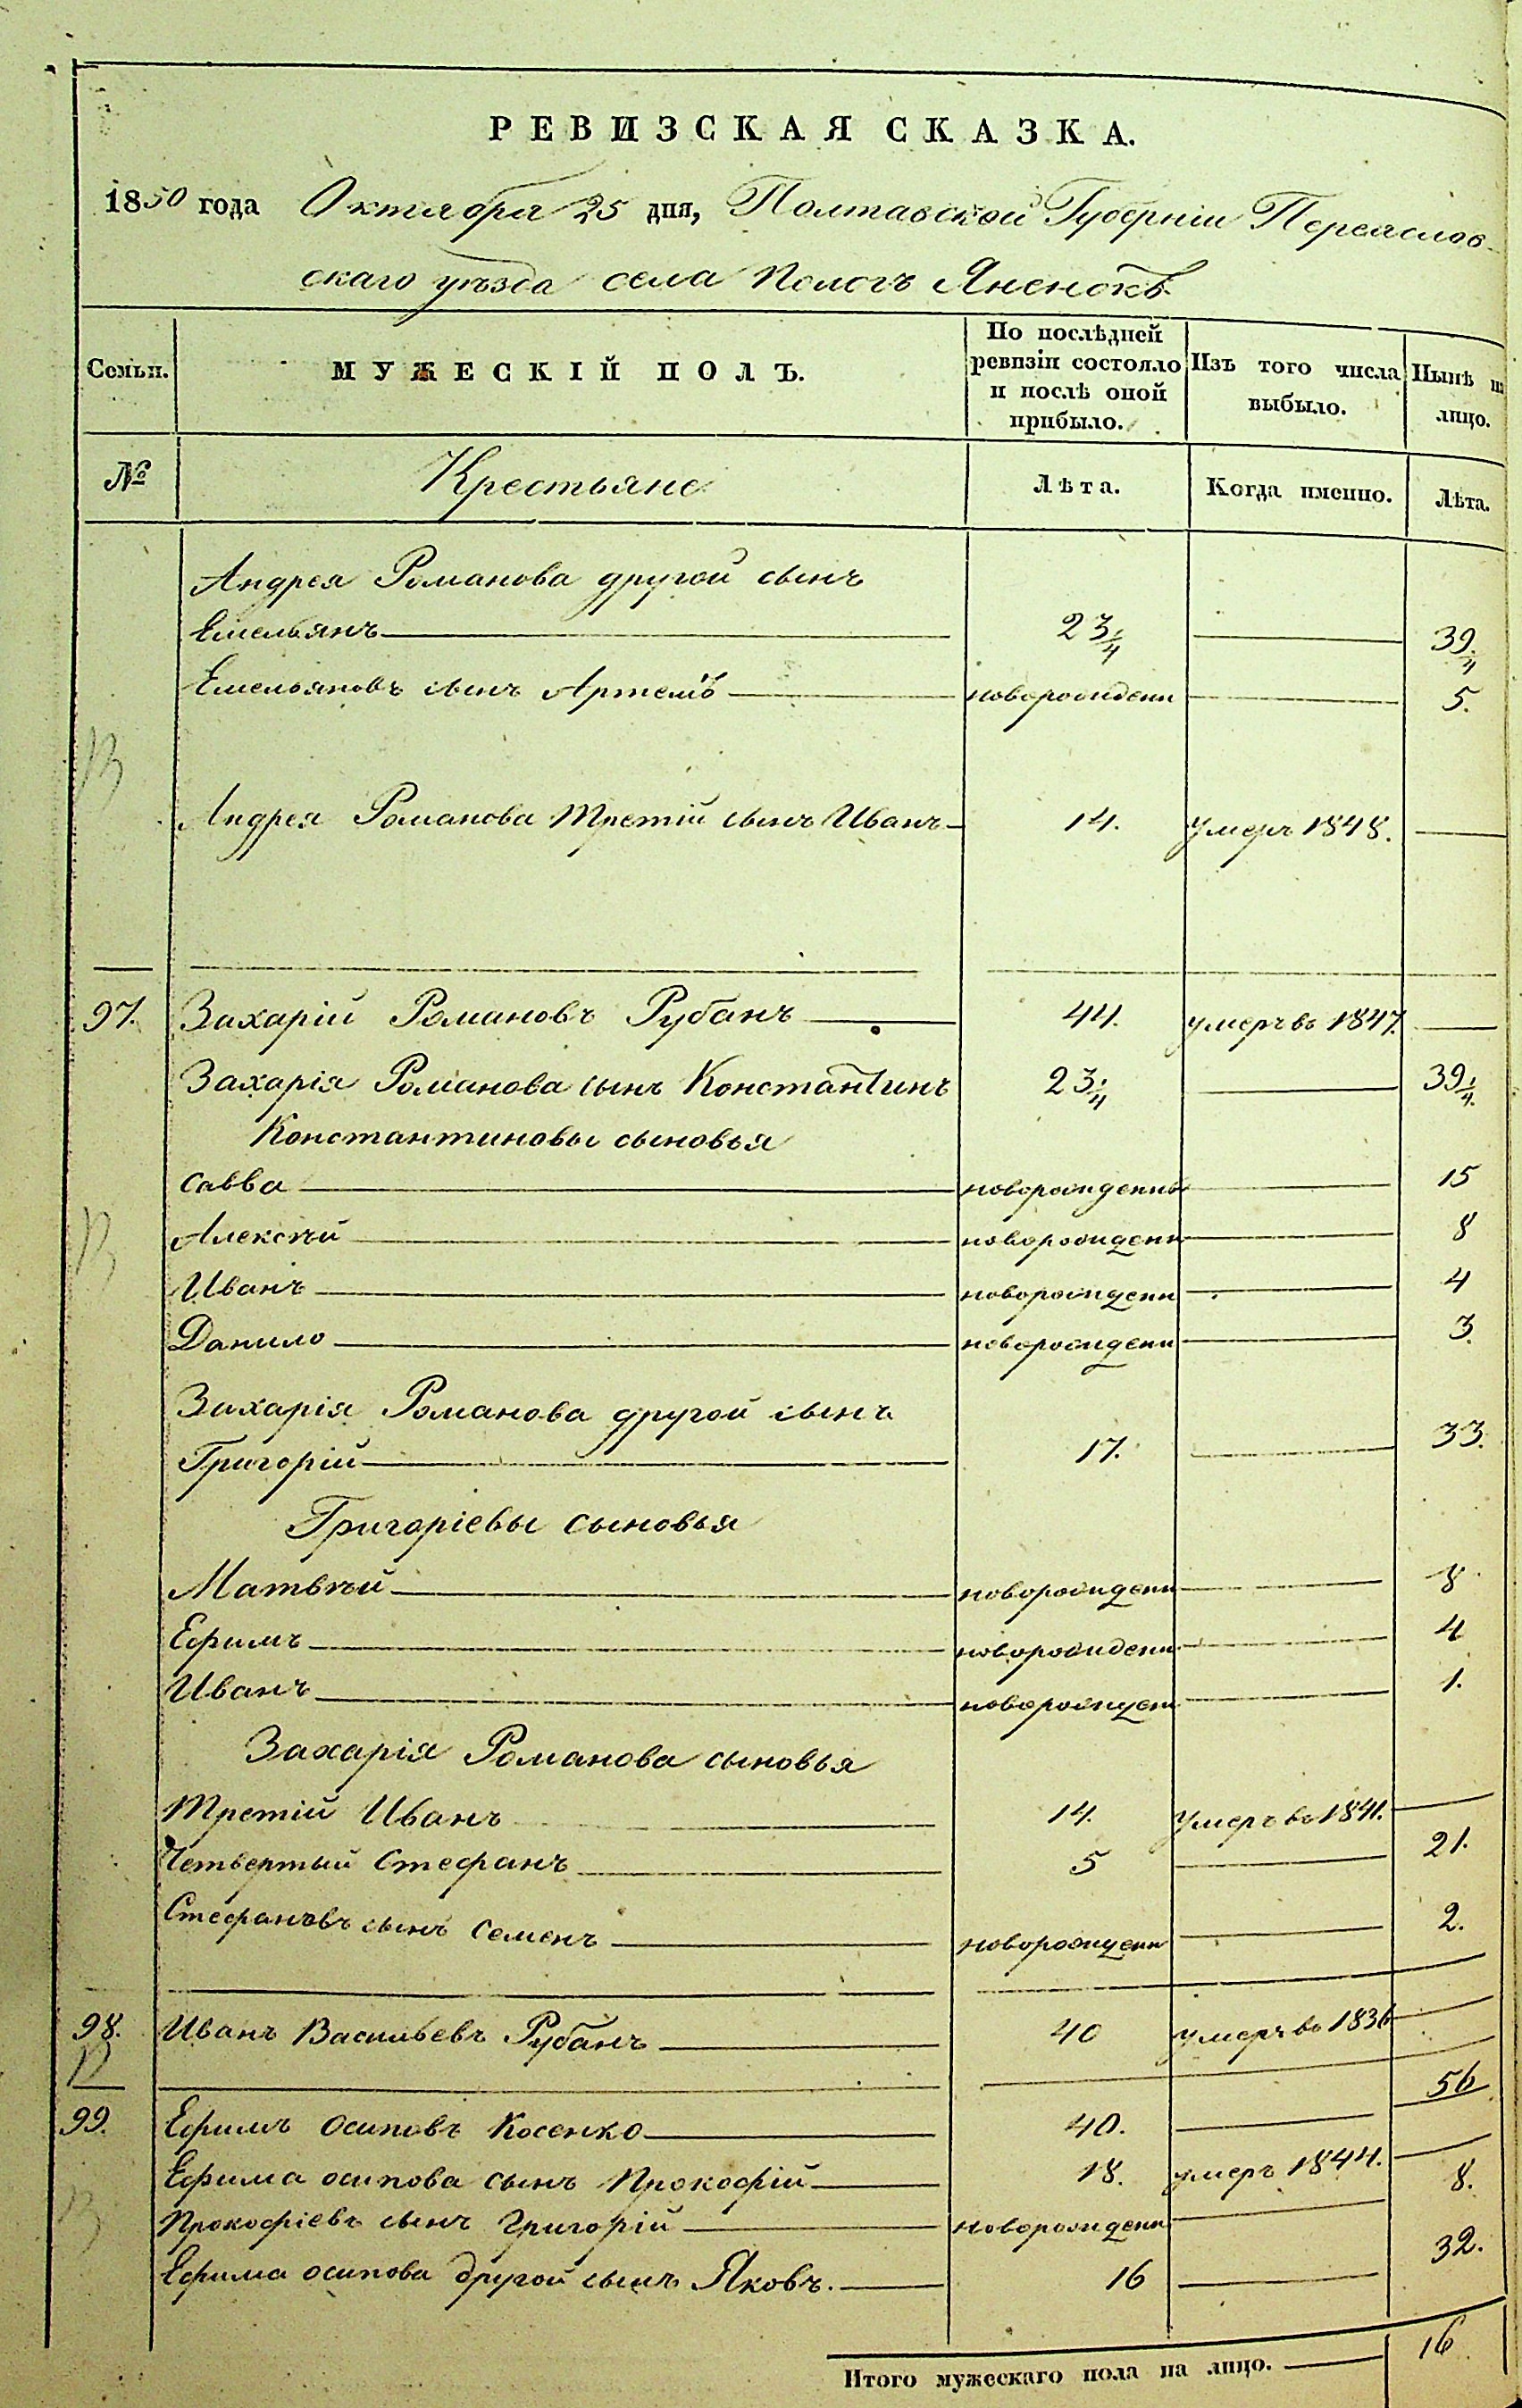 РЕВИЗСКАЯ СКАЗКА.
1850 года Октября 25 дня, Полтавской Губерніи Переяслов-
скаго уѣзда села Пологъ Яненокъ
Семьи. МУЖЕСКІЙ ПОЛЪ. По послѣдней ревизіи состояло и послѣ оной прибыло. Изъ того числа выбыло. Нынѣ на лицо.
№ Крестьяне Лѣта. Когда именно. Лѣта.
Андрея Романова другой сынъ
Емельянъ 23 1/4 39 1/4
Емельяновъ сынъ Артемъ новорожденн 5.
Андрея Романова третій сынъ Иванъ 14. умеръ 1848.
97. Захарій Романовъ Рубанъ 44. умеръ въ 1847.
Захарія Романова сынъ Константинъ 23 1/4 39 1/4
Константиновы сыновья
Савва новорожденны 15
Алексѣй новорожденн 8
Иванъ новорожденн 4
Данило новорожденн 3.
Захарія Романова другой сынъ
Григорій 17. 33.
Григоріевы сыновья
Матвѣй новорожденн 8
Ефимъ новорожденн 4
Иванъ новорожден 1.
Захарія Романова сыновья
третій Иванъ 14. умеръ въ 1841.
четвертый Стефанъ 5 21.
Стефановъ сынъ Семенъ новорожденн 2.
98. Иванъ Васильевъ Рубанъ 40 умеръ въ 1836
99. Ефимъ Осиповъ Косенко 40. 56
Ефима Осипова сынъ Прокофій 18. умеръ 1844.
Прокофіевъ сынъ Григорій новорожденн 8.
Ефима Осипова другой сынъ Яковъ. 16 32.
Итого мужескаго пола на лицо. 16